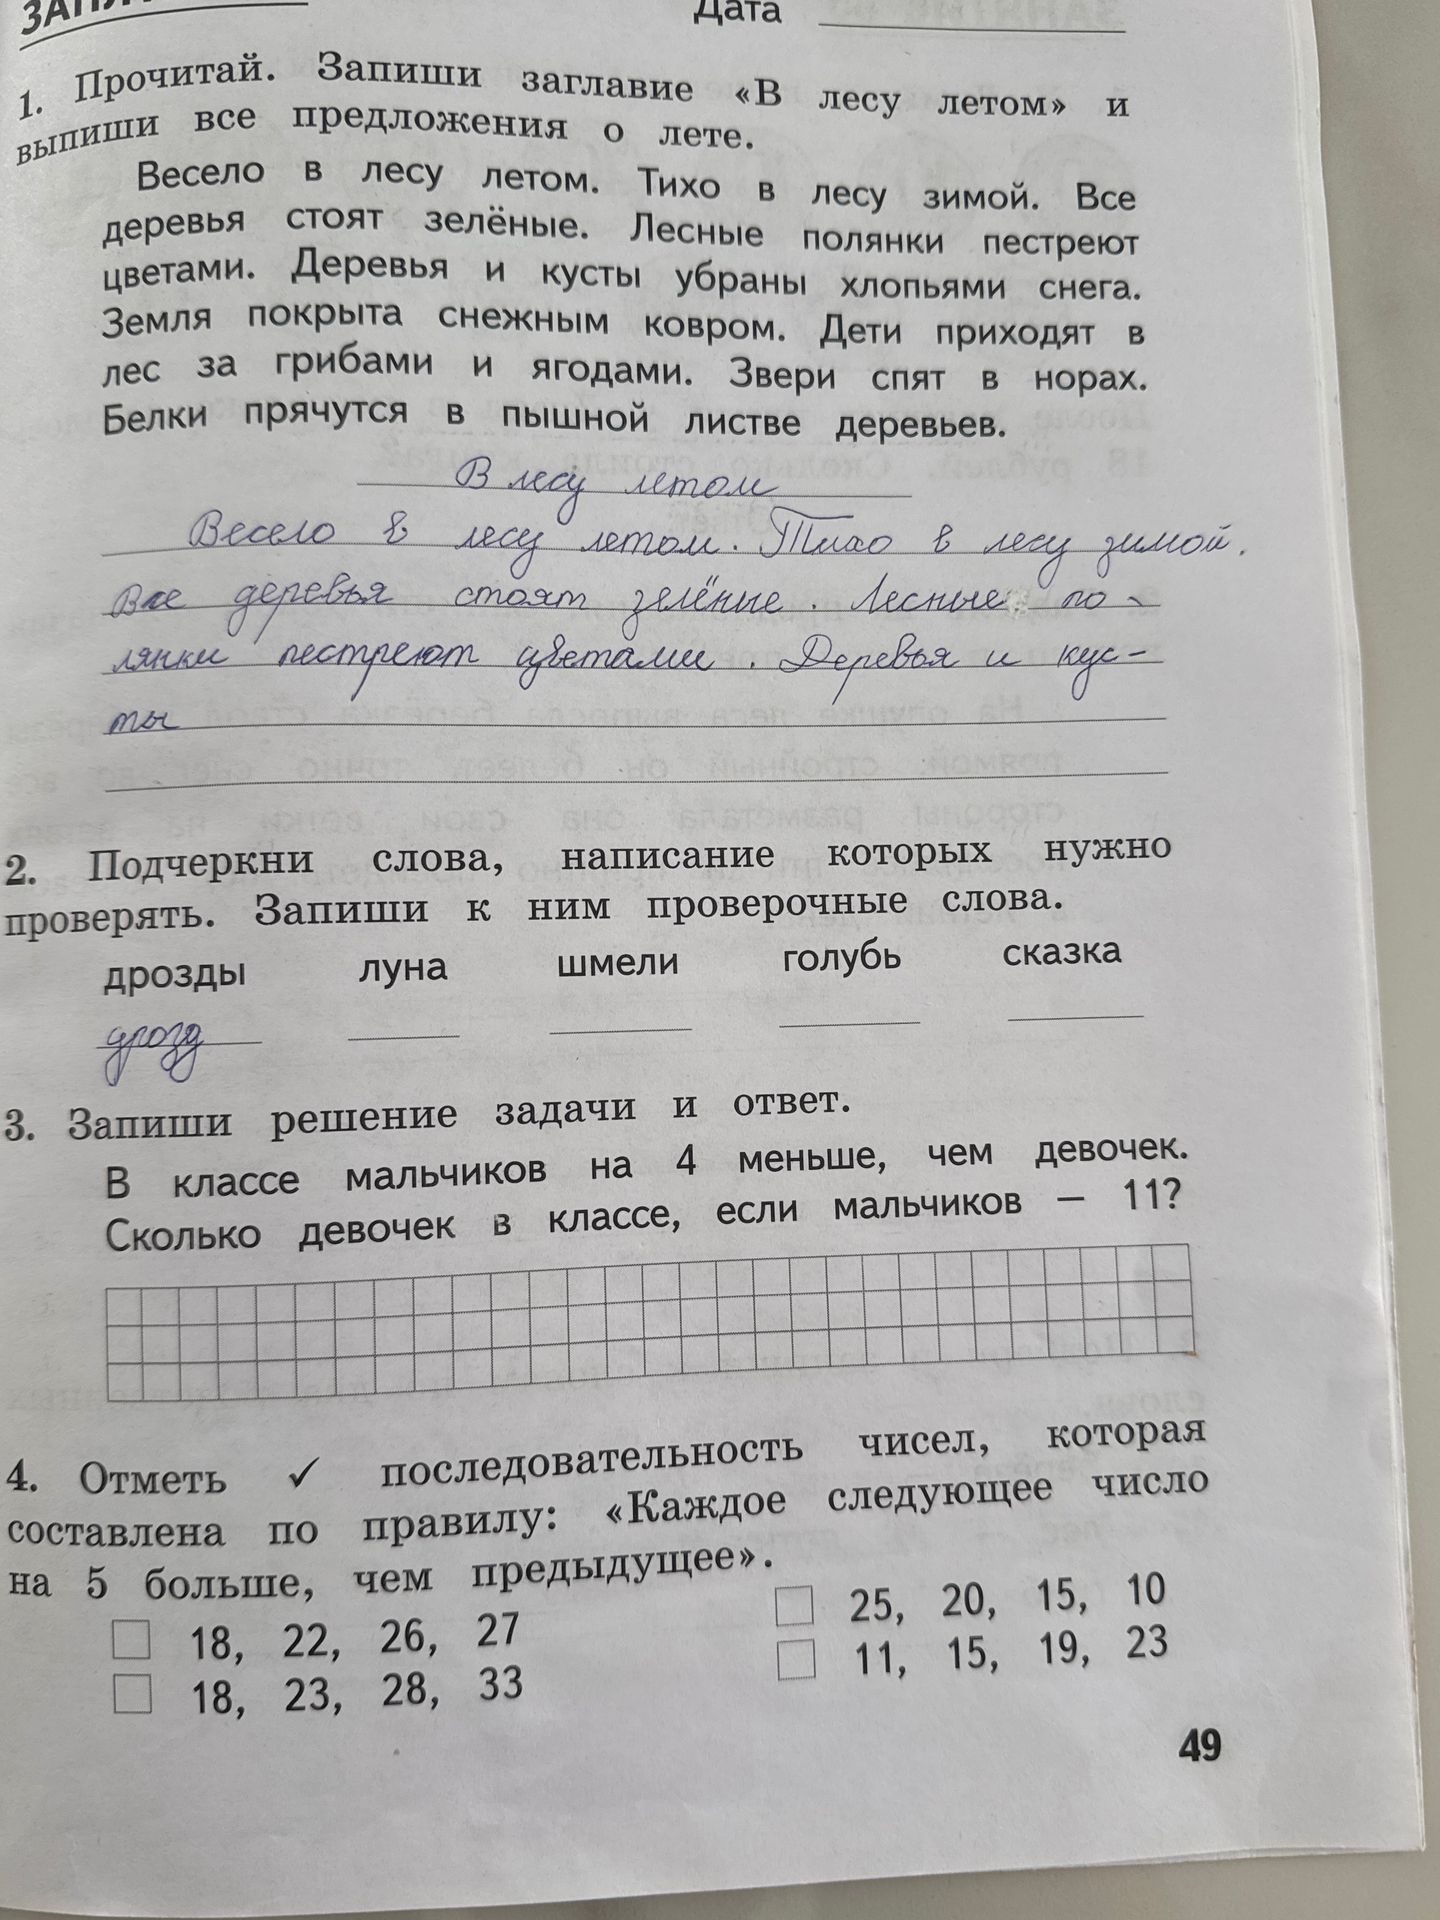 Дата
1. Прочитай. Запиши заглавие «В лесу летом» и
выпиши все предложения о лете.
Весело в лесу летом. Тихо в лесу зимой. Все
деревья стоят зелёные. Лесные полянки пестреют
цветами. Деревья и кусты убраны хлопьями снега.
Земля покрыта снежным ковром. Дети приходят в
лес за грибами и ягодами. Звери спят в норах.
Белки прячутся в пышной листве деревьев.
В лесу летом
Весело в лесу летом. Тихо в лесу зимой.
Все деревья стоят зелёные. Лесные по-
лянки пестреют цветами. Деревья и кус-
ты
2. Подчеркни слова, написание которых нужно
проверять. Запиши к ним проверочные слова.
дрозды луна шмели голубь сказка
дрозд
3. Запиши решение задачи и ответ.
В классе мальчиков на 4 меньше, чем девочек.
Сколько девочек в классе, если мальчиков — 11?
4. Отметь ✓ последовательность чисел, которая
составлена по правилу: «Каждое следующее число
на 5 больше, чем предыдущее».
18, 22, 26, 27 25, 20, 15, 10
18, 23, 28, 33 11, 15, 19, 23
49